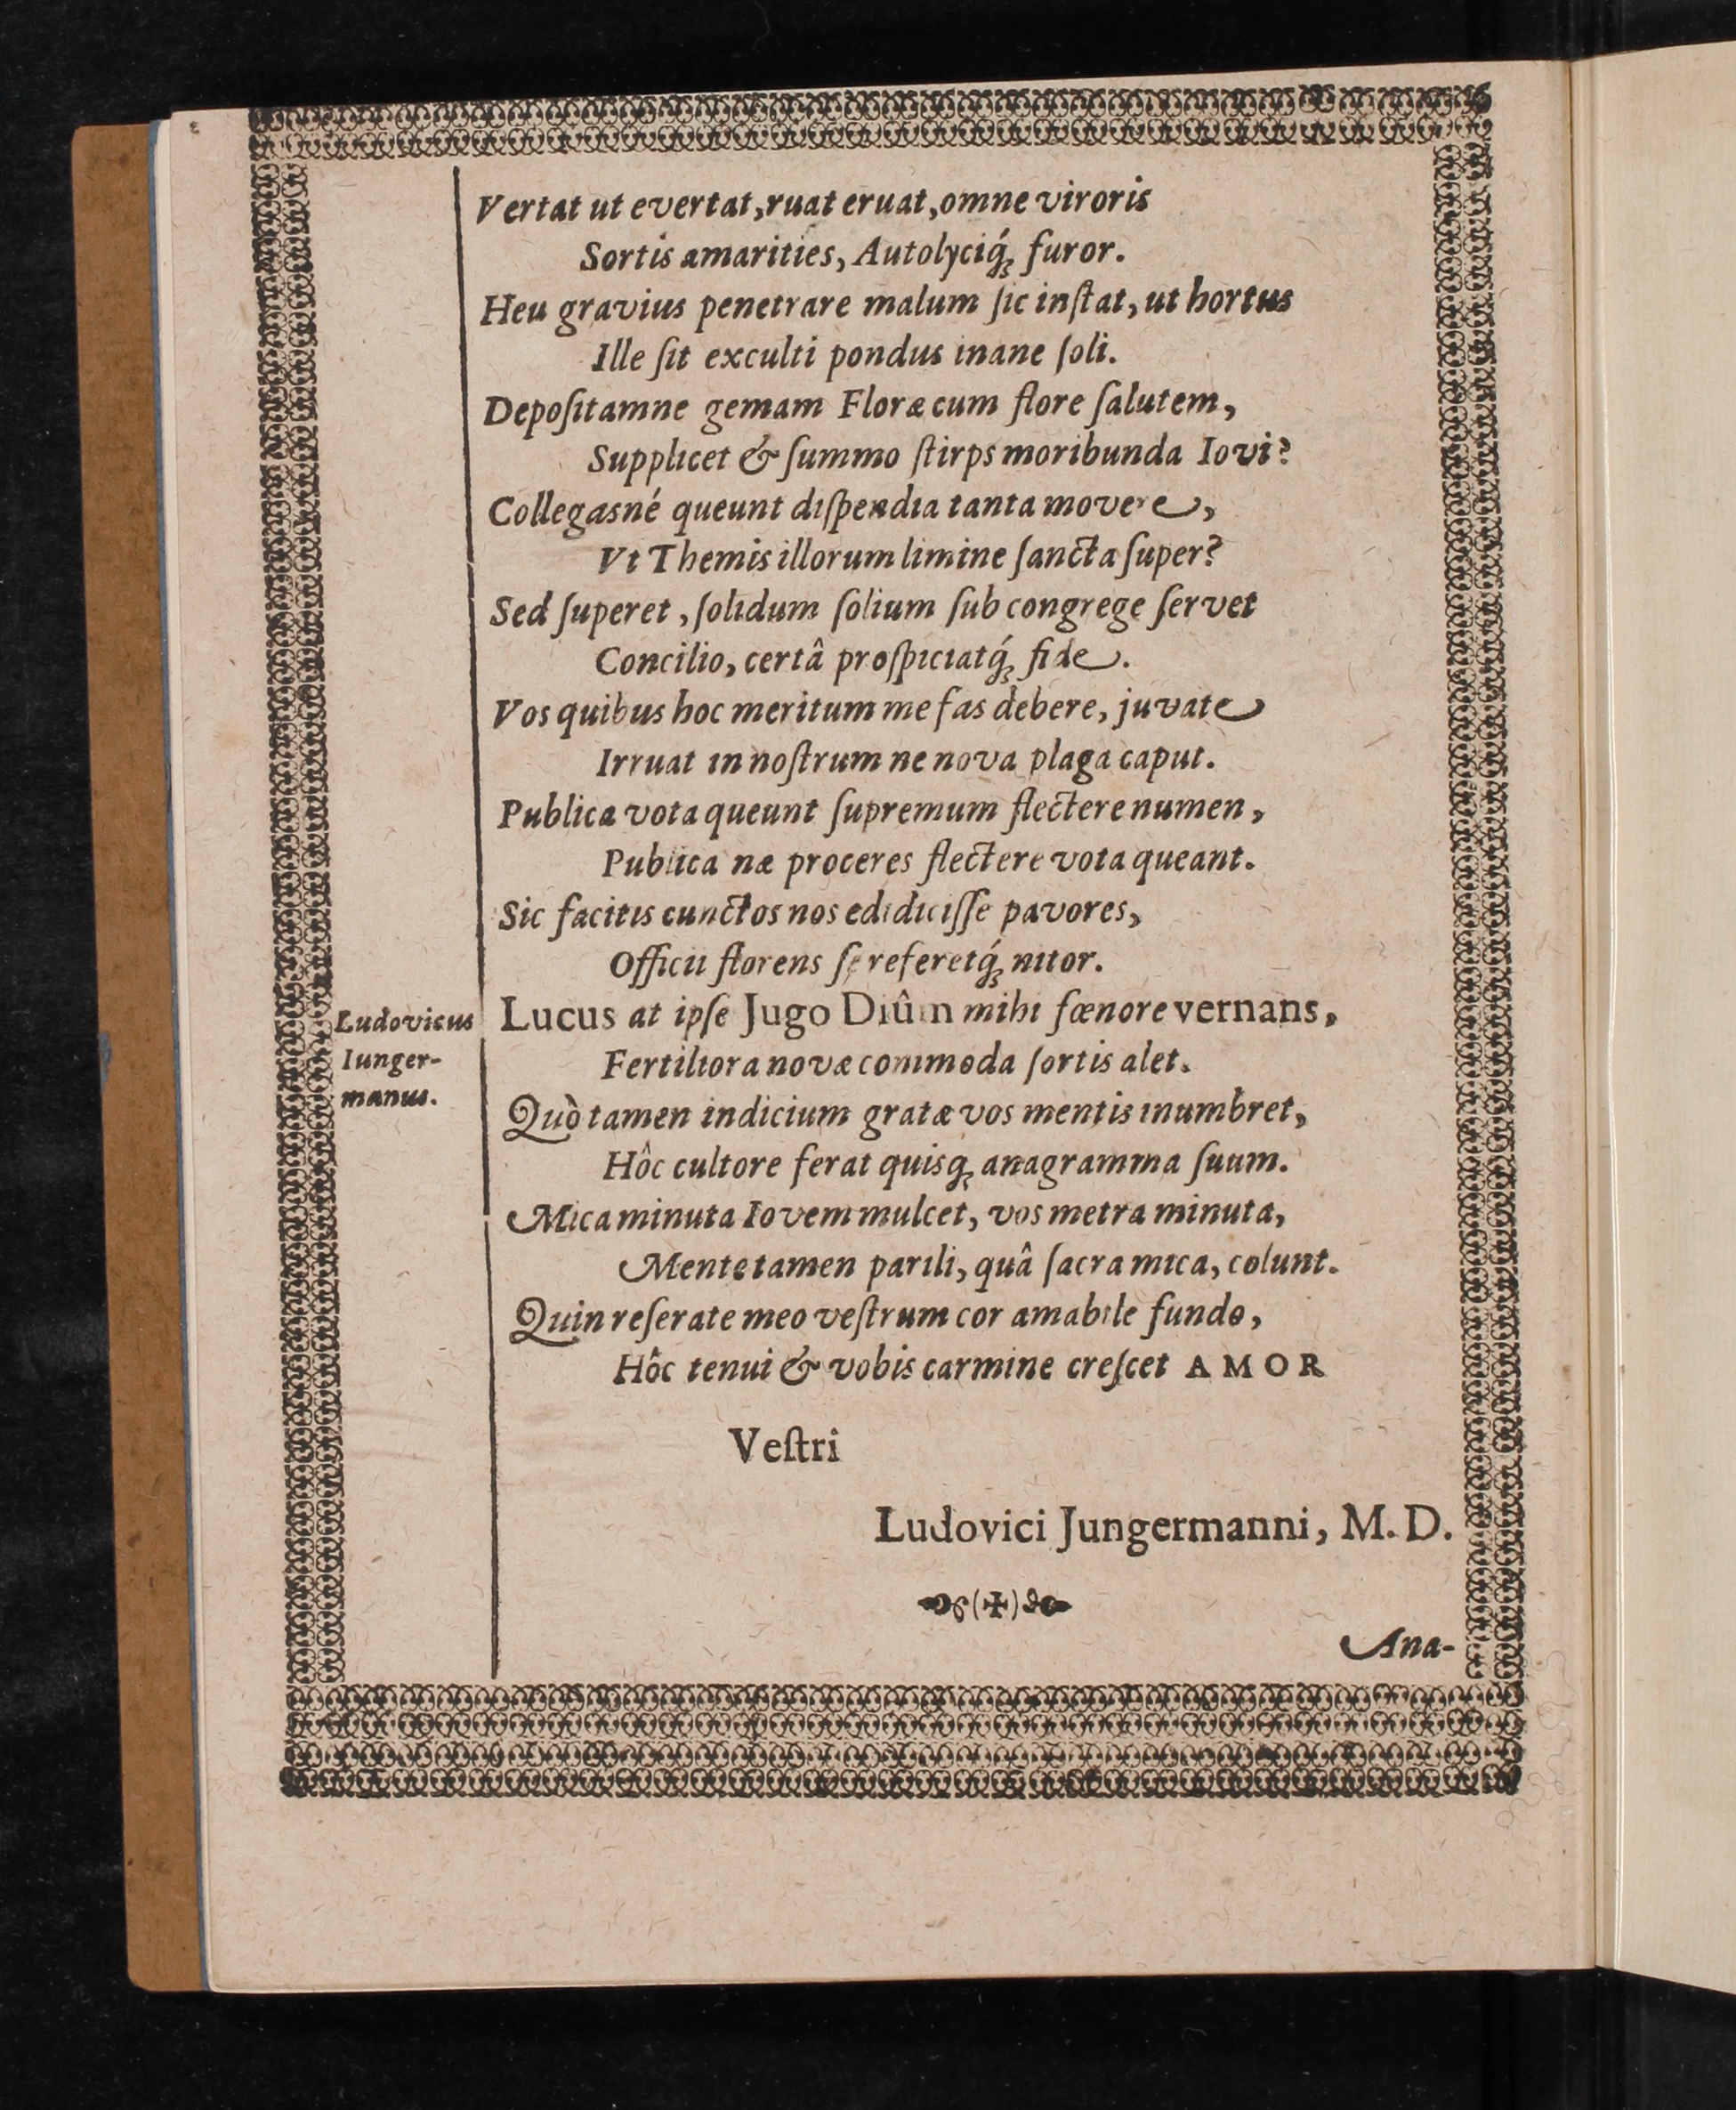 Vertat ut evertat, ruat eruat, omne viroris
Sortis amarities, Autolyciq́ꝫ furor.
Heu gravius penetrare malum ſic inſtat, ut hortus
Ille ſit exculti pondus inane ſoli.
Depoſitamne gemam Floræ cum flore ſalutem,
Supplicet & ſummo ſtirps moribunda Iovi?
Collegasné queunt diſpendia tanta movere,
Vt Themis illorum limine ſancta ſuper?
Sed ſuperet, ſolidum ſolium ſub congrege ſervet
Concilio, certâ proſpiciatq́ꝫ fide.
Vos quibus hoc meritum me fas debere, juvate
Irruat in noſtrum ne nova plaga caput.
Publica vota queunt ſupremum flectere numen,
Publica næ proceres flectere vota queant.
Sic facitis cunctos nos edidiciſſe pavores,
Officii florens ſe referetq́ꝫ nitor.
Ludovicus
Iunger-
manus.
Lucus at ipſe Jugo Diûm mihi fœnore vernans,
Fertiliora novæ commoda ſortis alet.
Quò tamen indicium gratæ vos mentis inumbret,
Hôc cultore ferat quisqꝫ anagramma ſuum.
Mica minuta Iovem mulcet, vos metra minuta,
Mente tamen parili, quâ ſacra mica, colunt.
Quin reſerate meo veſtrum cor amabile fundo,
Hôc tenui & vobis carmine creſcet AMOR
Veſtri
Ludovici Jungermanni, M. D.
Ana-